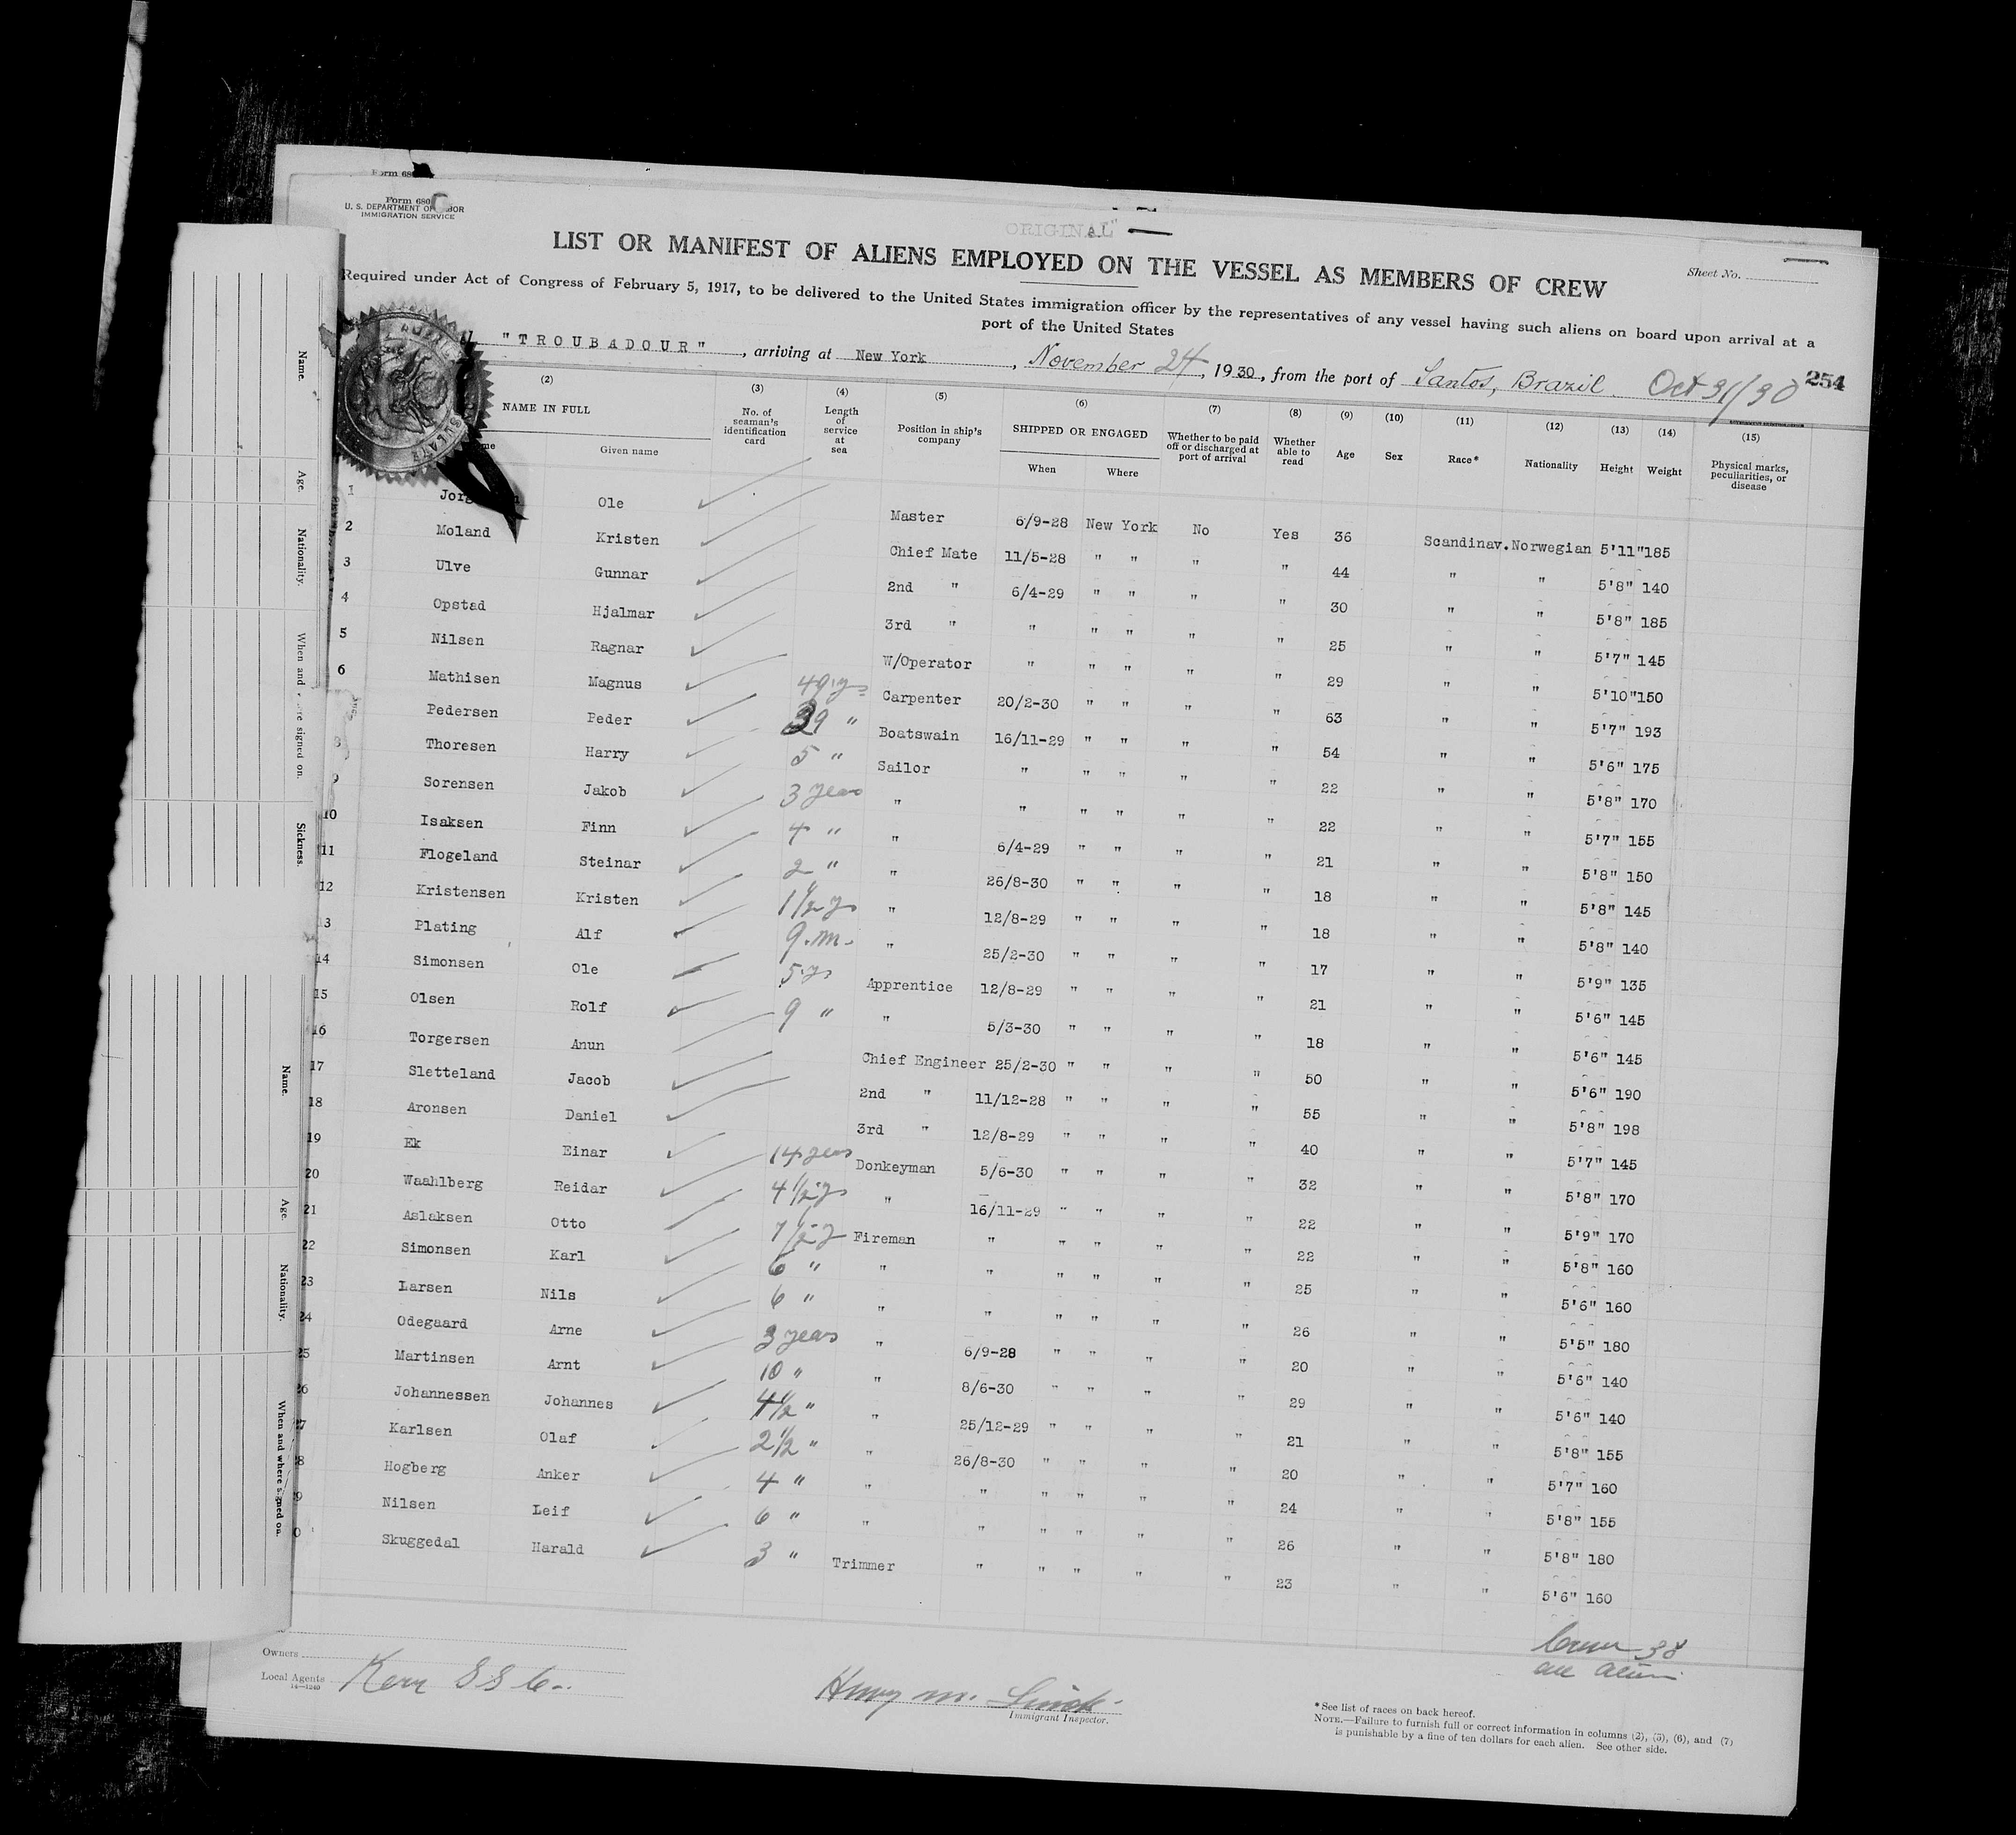 Form 680
Form 680
U. S. DEPARTMENT OF LABOR
IMMIGRATION SERVICE
ORIGINAL
LIST OR MANIFEST OF ALIENS EMPLOYED ON THE VESSEL AS MEMBERS OF CREW
Sheet No.
Required under Act of Congress of February 5, 1917, to be delivered to the United States immigration officer by the representatives of any vessel having such aliens on board upon arrival at a
port of the United States
"TROUBADOUR", arriving at New York, November 24, 1930, from the port of Santos, Brazil. Oct 31/30 254
(2) (3) (4) (5) (6) (7) (8) (9) (10) (11) (12) (13) (14) (15)
NAME IN FULL No. of seaman's identification card Length of service at sea Position in ship's company SHIPPED OR ENGAGED Whether to be paid off or discharged at port of arrival Whether able to read Age Sex Race* Nationality Height Weight Physical marks, peculiarities, or disease
Given name When Where
1 Ole Master 6/9-28 New York No Yes 36 Scandinav. Norwegian 5'11" 185
2 Moland Kristen Chief Mate 11/5-28 " " " " 44 " " 5'8" 140
3 Ulve Gunnar 2nd " 6/4-29 " " " " 30 " " 5'8" 185
4 Opstad Hjalmar 3rd " " " " " " 25 " " 5'7" 145
5 Nilsen Ragnar W/Operator " " " " " 29 " " 5'10" 150
6 Mathisen Magnus 49 ys Carpenter 20/2-30 " " " " 63 " " 5'7" 193
Pedersen Peder 39 " Boatswain 16/11-29 " " " " 54 " " 5'6" 175
8 Thoresen Harry 5 " Sailor " " " " " 22 " " 5'8" 170
9 Sorensen Jakob 3 years " " " " " " 22 " " 5'7" 155
10 Isaksen Finn 4 " " 6/4-29 " " " " 21 " " 5'8" 150
11 Flogeland Steinar 2 " " 26/8-30 " " " " 18 " " 5'8" 145
12 Kristensen Kristen 1 1/2 ys " 12/8-29 " " " " 18 " " 5'8" 140
13 Plating Alf 9.m. " 25/2-30 " " " " 17 " " 5'9" 135
14 Simonsen Ole 5 ys Apprentice 12/8-29 " " " " 21 " " 5'6" 145
15 Olsen Rolf 9 " " 5/3-30 " " " " 18 " " 5'6" 145
16 Torgersen Anun Chief Engineer 25/2-30 " " " " 50 " " 5'6" 190
17 Sletteland Jacob 2nd " 11/12-28 " " " " 55 " " 5'8" 198
18 Aronsen Daniel 3rd " 12/8-29 " " " " 40 " " 5'7" 145
19 Ek Einar 14 years Donkeyman 5/6-30 " " " " 32 " " 5'8" 170
20 Waahlberg Reidar 4 1/2 ys " 16/11-29 " " " " 22 " " 5'9" 170
21 Aslaksen Otto 7 1/2 y Fireman " " " " " 22 " " 5'8" 160
22 Simonsen Karl 6 " " " " " " " 25 " " 5'6" 160
23 Larsen Nils 6 " " " " " " " 26 " " 5'5" 180
24 Odegaard Arne 3 years " 6/9-28 " " " " 20 " " 5'6" 140
25 Martinsen Arnt 10 " " 8/6-30 " " " " 29 " " 5'6" 140
26 Johannessen Johannes 4 1/2 " " 25/12-29 " " " " 21 " " 5'8" 155
27 Karlsen Olaf 2 1/2 " " 26/8-30 " " " " 20 " " 5'7" 160
8 Hogberg Anker 4 " " " " " " " 24 " " 5'8" 155
9 Nilsen Leif 6 " " " " " " " 26 " " 5'8" 180
0 Skuggedal Harald 3 " Trimmer " " " " " 23 " " 5'6" 160
Crew 38
all alien
Owners
Local Agents Kerr S S Co.
14—1240
Henry M.
Immigrant Inspector.
*See list of races on back hereof.
NOTE.—Failure to furnish full or correct information in columns (2), (5), (6), and (7)
is punishable by a fine of ten dollars for each alien. See other side.
Name.
Age.
Nationality.
When and where signed on.
Sickness.
Name.
Age.
Nationality.
When and where signed on.